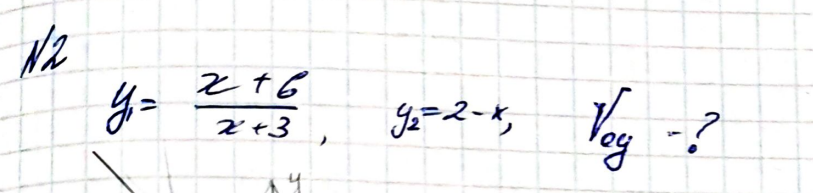 №2
y₁ = (x + 6)/(x + 3), y₂ = 2 - x, V_oy - ?
y